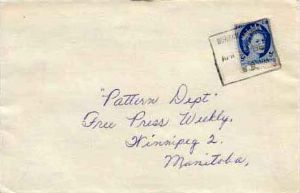 CANADA
"Pattern Dept"
Free Press Weekly,
Winnipeg 2.
Manitoba,